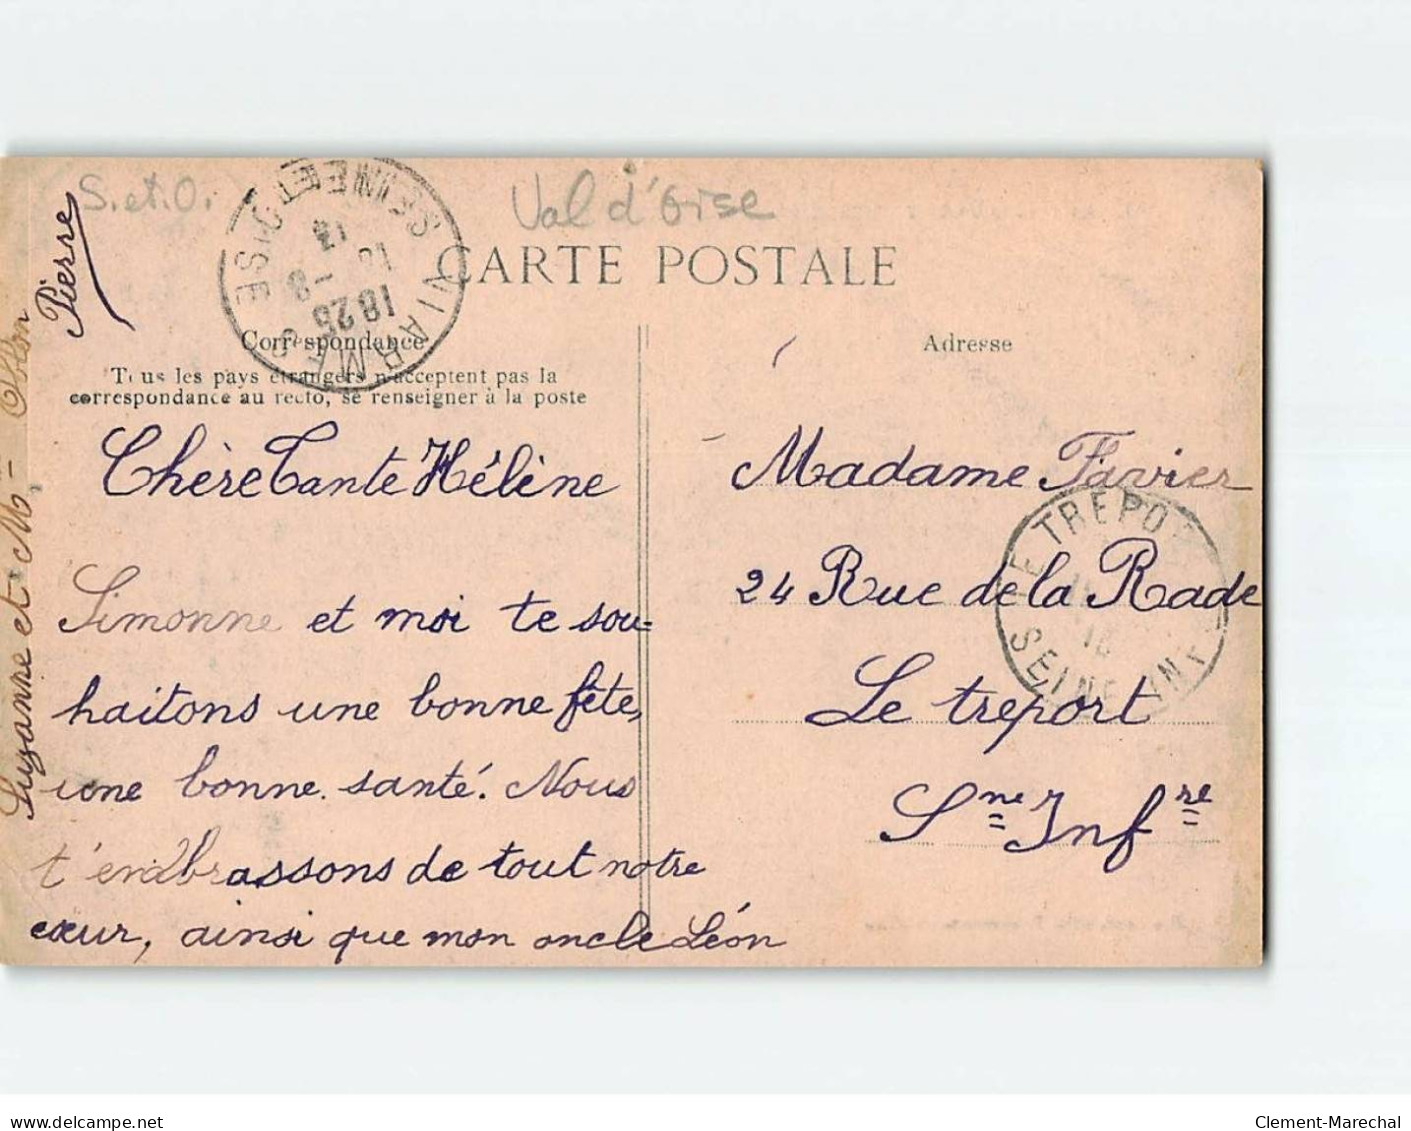 S. et. O.
Val d'Oise
CARTE POSTALE
VIARMES
SEINE ET OISE
1825
Correspondance
Tous les pays étrangers n'acceptent pas la
correspondance au recto, se renseigner à la poste
Chère Tante Hélène
Simonne et moi te sou=
haitons une bonne fête,
une bonne santé. Nous
t'embrassons de tout notre
cœur, ainsi que mon oncle Léon
Suzanne et M.
Pierre
Adresse
Madame Favier
24 Rue de la Rade
Le treport
Sne Infre
LE TREPORT
SEINE INFRE
delcampe.net
Clement-Marechal